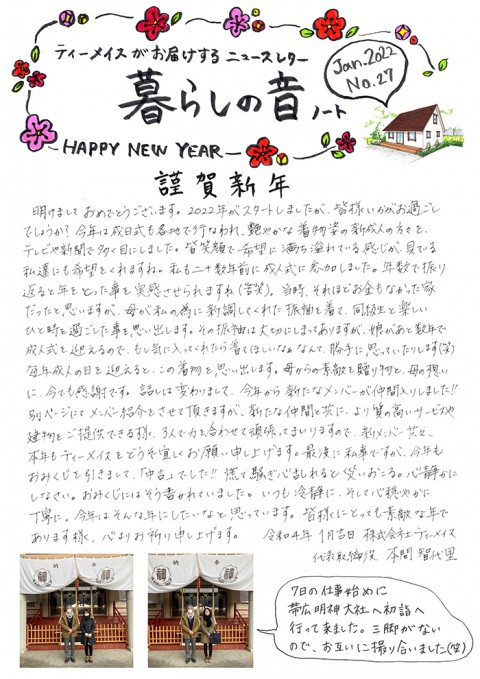 ティーメイスがお届けするニュースレター
Jan.2022
No.27
暮らしの音ノート
HAPPY NEW YEAR
謹賀新年
明けましておめでとうございます。2022年がスタートしましたが、皆様いかがお過ごし
でしょうか？今年は成日式も各地で行なわれ、艶やかな着物姿の新成人の方々を、
テレビや新聞で多く目にしました。皆笑顔で希望に満ち溢れている感じが、見ている
私達にも希望をくれますね。私も二十数年前に成人式に参加しました。年数で振り
返ると年をとった事を実感させられますね(苦笑)。当時、それほどお金もなかった家
だったと思いますが、母が私の為に新調してくれた振袖を着て、同級生と楽しい
ひと時を過ごした事を思い出します。その振袖は大切にしまってありますが、娘があと数年で
成人式を迎えるので、もし気に入ってくれたら着てほしいなぁなんて、勝手に思っていたりします(笑)
毎年成人の日を迎えると、この着物を思い出します。母からの素敵な贈り物と、母の想い
に、今でも感謝です。話しは変わりまして、今年から新たなメンバーが仲間入りしました!!
別ページにてメンバー紹介をさせて頂きますが、新たな仲間と共に、より質の高いサービスや
建物をご提供できる様、3人で力を合わせて頑張ってまいりますので、新メンバー共々、
本年もティーメイスをどうぞ宜しくお願い申し上げます。最後に私事ですが、今年も
おみくじを引きまして、「中吉」でした!!慌て騒ぎ心乱れると災いおこる。心静かに
しなさい。おみくじにはそう書かれていました。いつも冷静に、そして心穏やかに
丁寧に。今年はそんな年にしたいなと思っています。皆様にとっても素敵な年で
あります様、心よりお祈り申し上げます。 令和4年1月吉日 株式会社ティーメイス
代表取締役 本間 智代里
7日の仕事始めに
帯広明神大社へ初詣へ
行って来ました。三脚がない
ので、お互いに撮り合いました(笑)